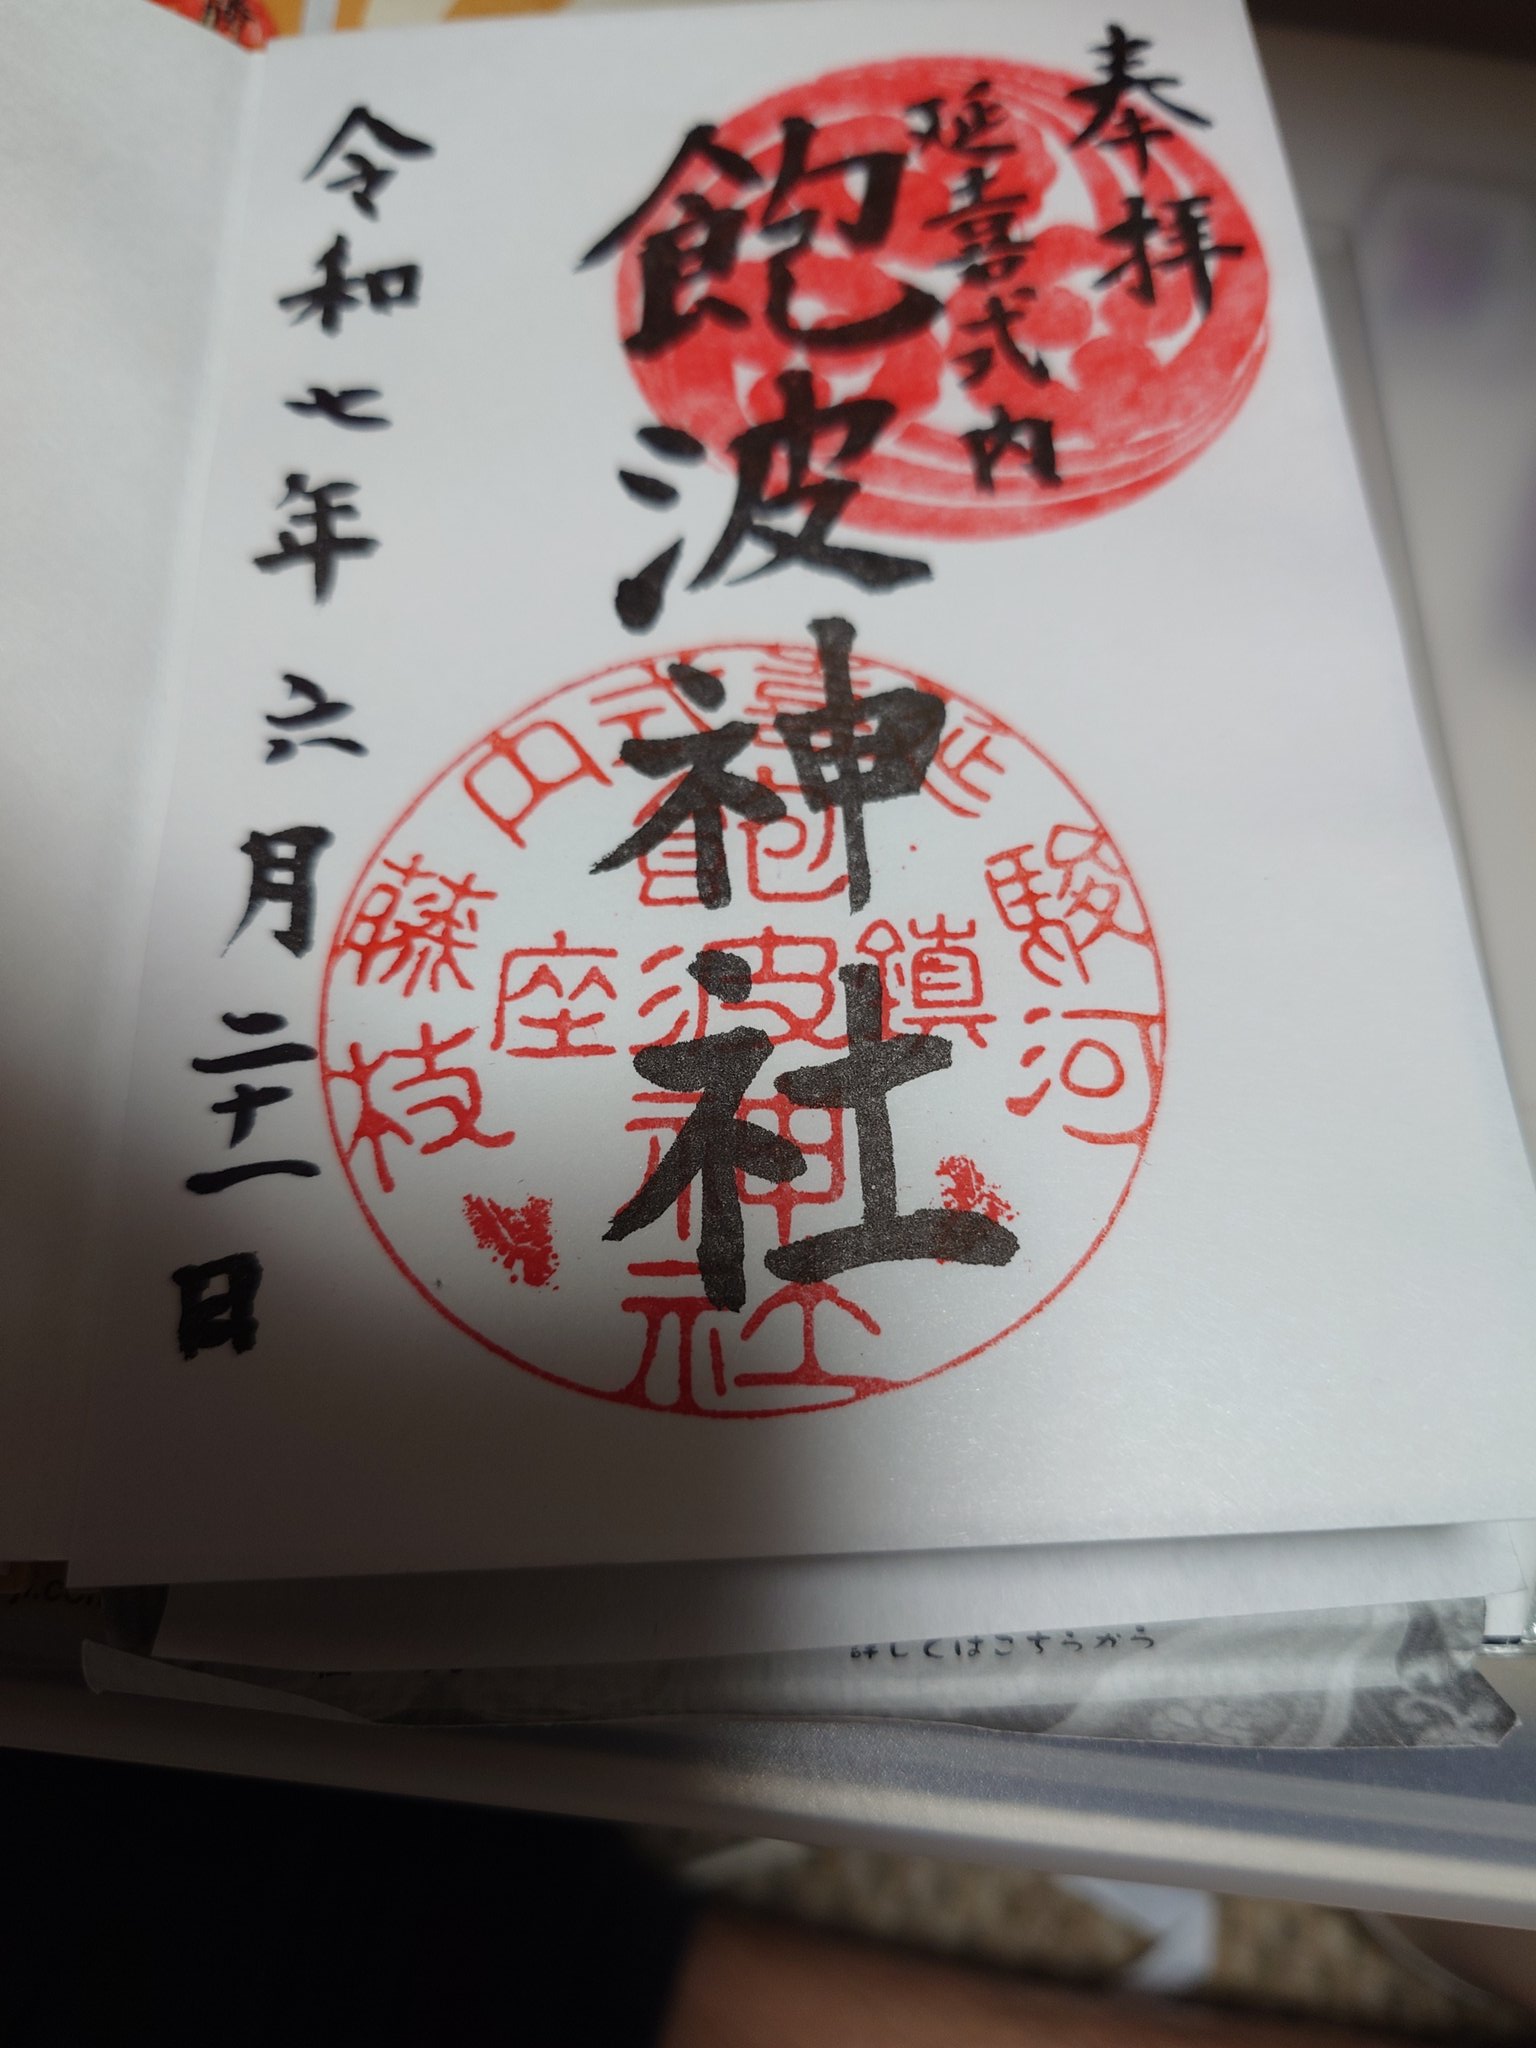 奉拝
延喜式内
飽波神社
駿河
延喜式内
藤枝
鎮
飽波神社
座
令和七年六月二十一日
詳しくはこちらから